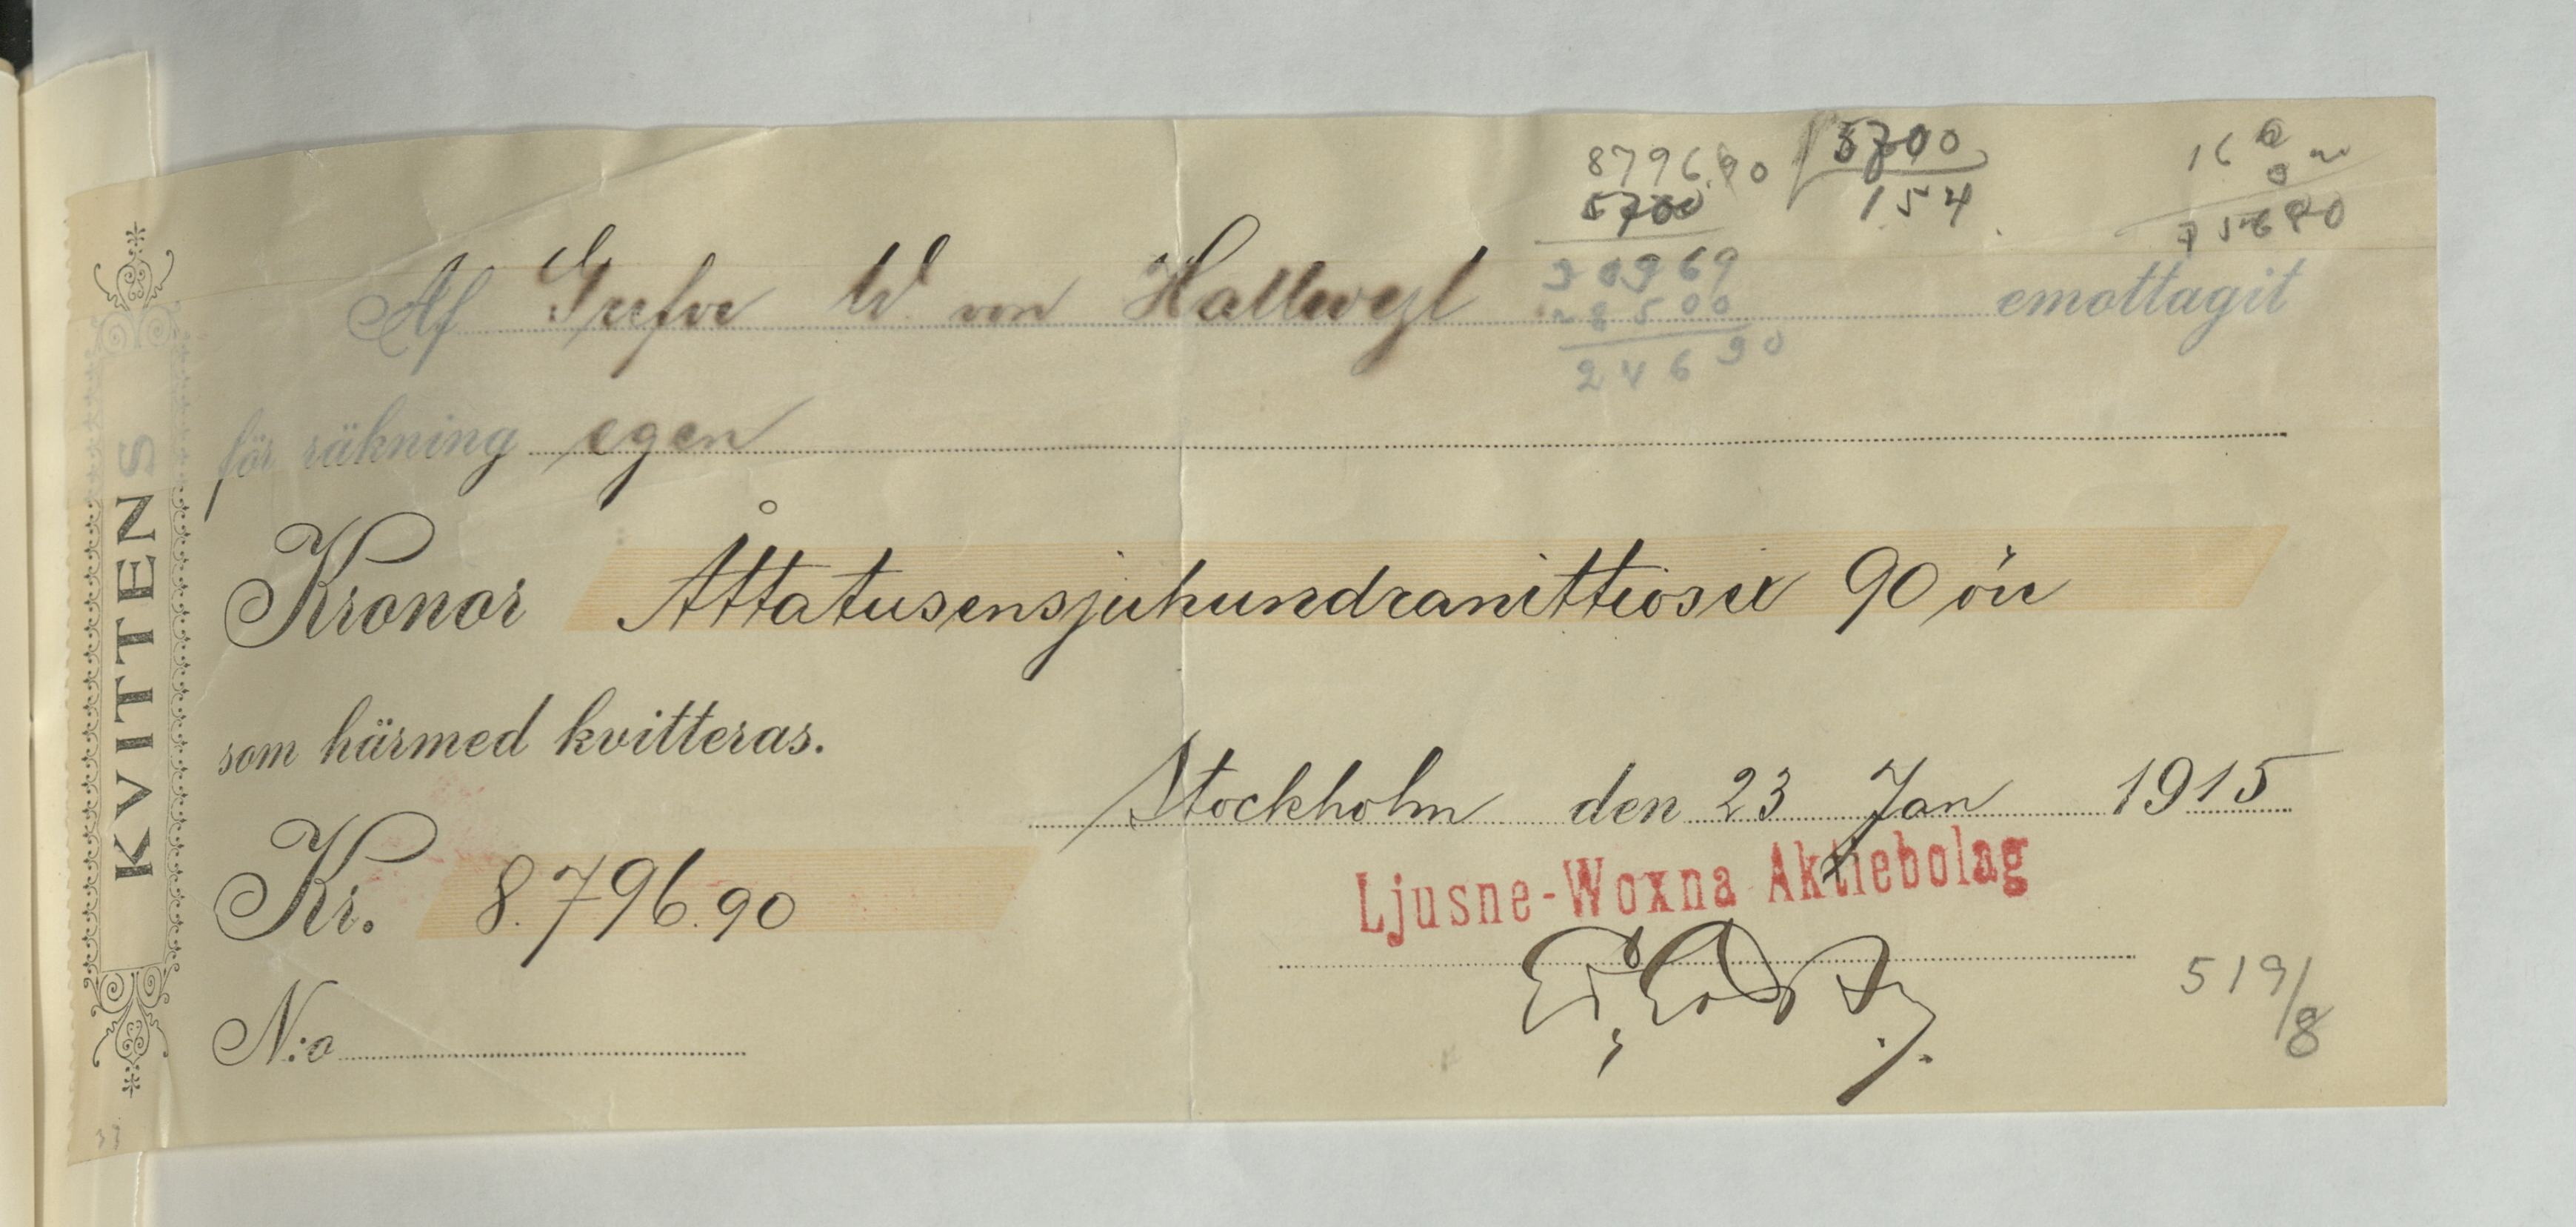 8796.90 5700
5700 154
30969
28500
24690
Af Grefve W. von Hallwyl emottagit
för räkning egen
Kronor Åttatusensjuhundranittiosex 90 öre
som härmed kvitteras.
Stockholm den 23 Jan 1915
Kr. 8.796.90
Ljusne-Woxna Aktiebolag
N:o
519/8
KVITTENS